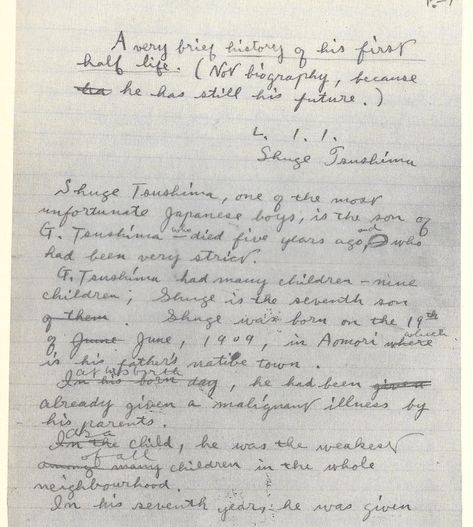 P-1
A very brief history of his first
half life. (Not biography, because
ha he has still his future.)
L. 1. 1.
Shuge Tsushima
Shuge Tsushima, one of the most
unfortunate Japanese boys, is the son of
G. Tsushima who died five years ago, and who
had been very strict.
G. Tsushima had many children - nine
children; Shuge is the seventh son
of them. Shuge was born on the 19th
of June June, 1909, in Aomori where which
is his father's native town.
In his born at his birth day, he had been given
already given a malignant illness by
his parents.
In the as a child, he was the weakest
among many of all children in the whole
neighbourhood.
In his seventh year, he was given